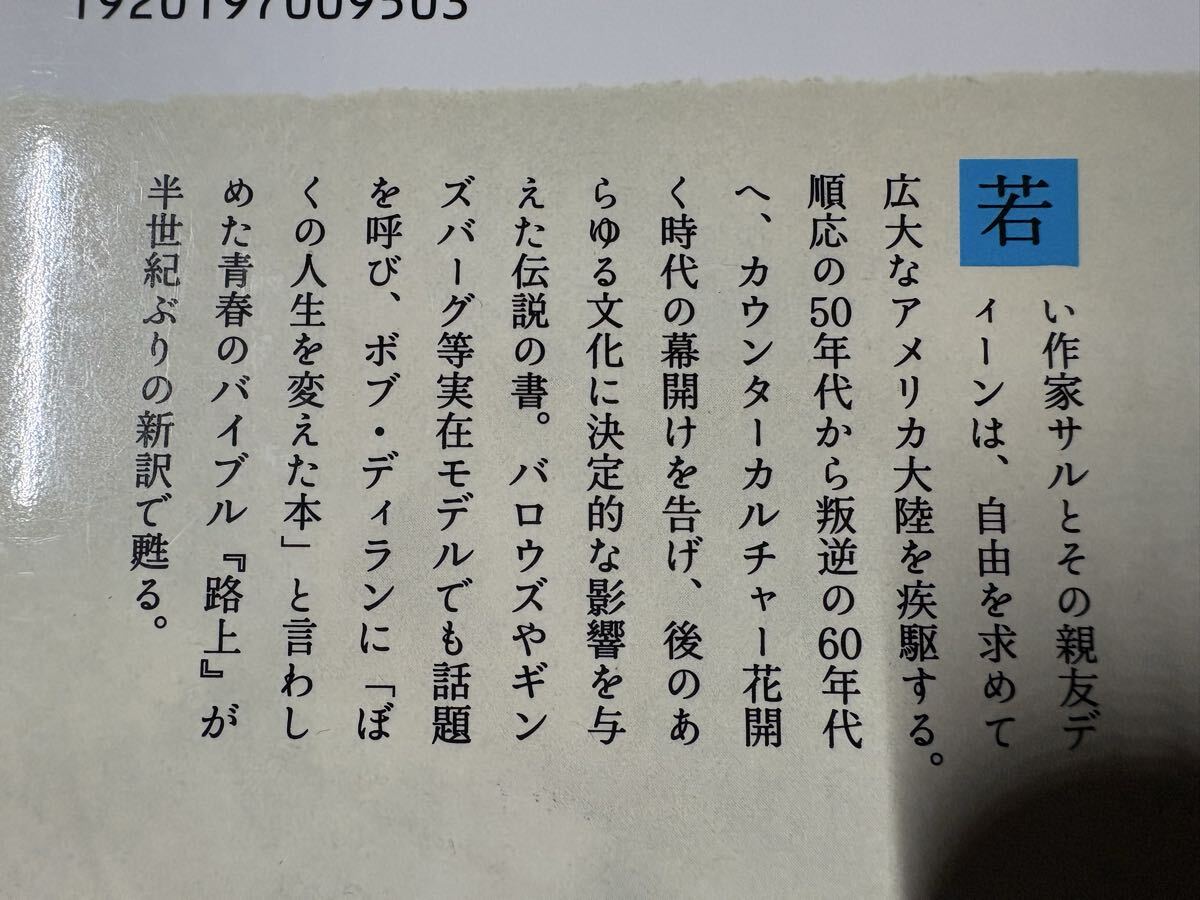 1920197009503
若
い作家サルとその親友デ
ィーンは、自由を求めて
広大なアメリカ大陸を疾駆する。
順応の50年代から叛逆の60年代
へ、カウンターカルチャー花開
く時代の幕開けを告げ、後のあ
らゆる文化に決定的な影響を与
えた伝説の書。バロウズやギン
ズバーグ等実在モデルでも話題
を呼び、ボブ・ディランに「ぼ
くの人生を変えた本」と言わし
めた青春のバイブル『路上』が
半世紀ぶりの新訳で甦る。